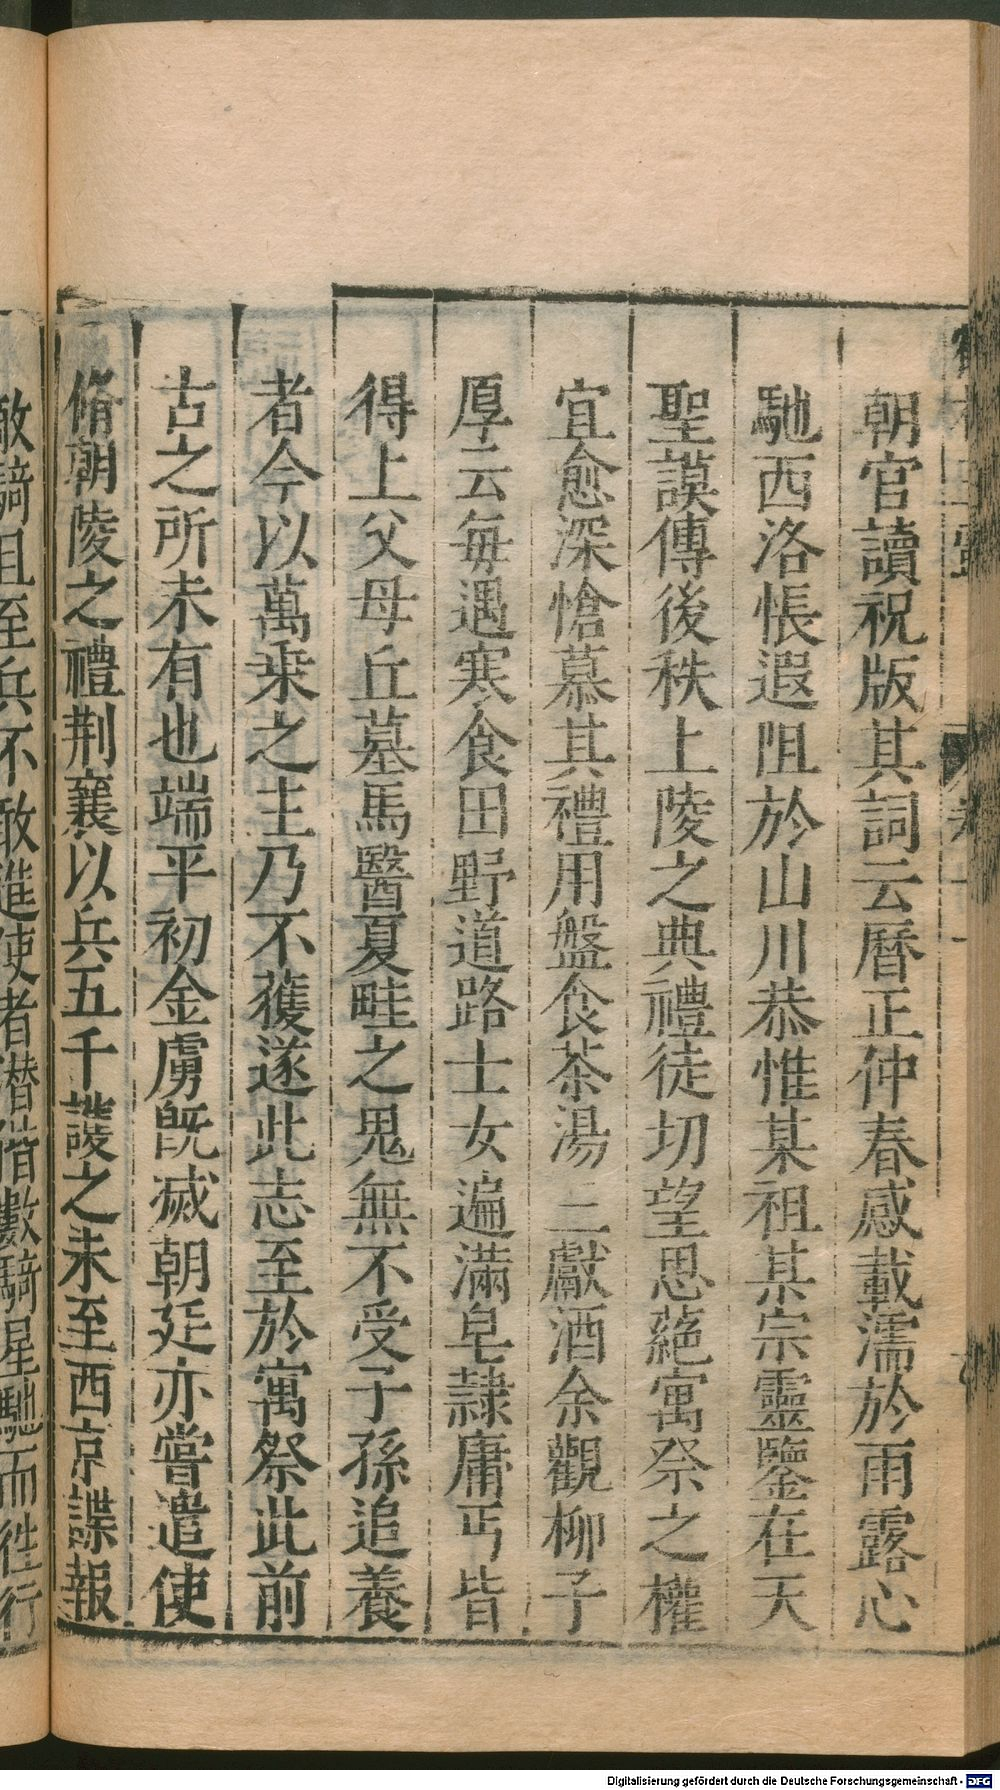 朝官讀祝版其詞云曆正仲春感載濡於雨露心
馳西洛悵遐阻於山川恭惟某祖某宗靈鑒在天
聖謨傳後秩上陵之典禮徒切望思蕝寓祭之權
宜愈深愴慕其禮用盤食茶湯三獻酒余觀柳子
厚云毎遇寒食田野道路士女遍滿皂隷庸丐皆
得上父母丘墓馬醫夏畦之鬼無不受子孫追養
者今以萬乗之主乃不獲遂此志至於寓祭此前
古之所未有也端平初金虜旣滅朝廷亦嘗遣使
脩朝陵之禮荆襄以兵五千護之未至西京諜報
敵騎且至兵不敢進使者潜偕數騎星馳而徃行
Digitalisierung gefördert durch die Deutsche Forschungsgemeinschaft - DFG